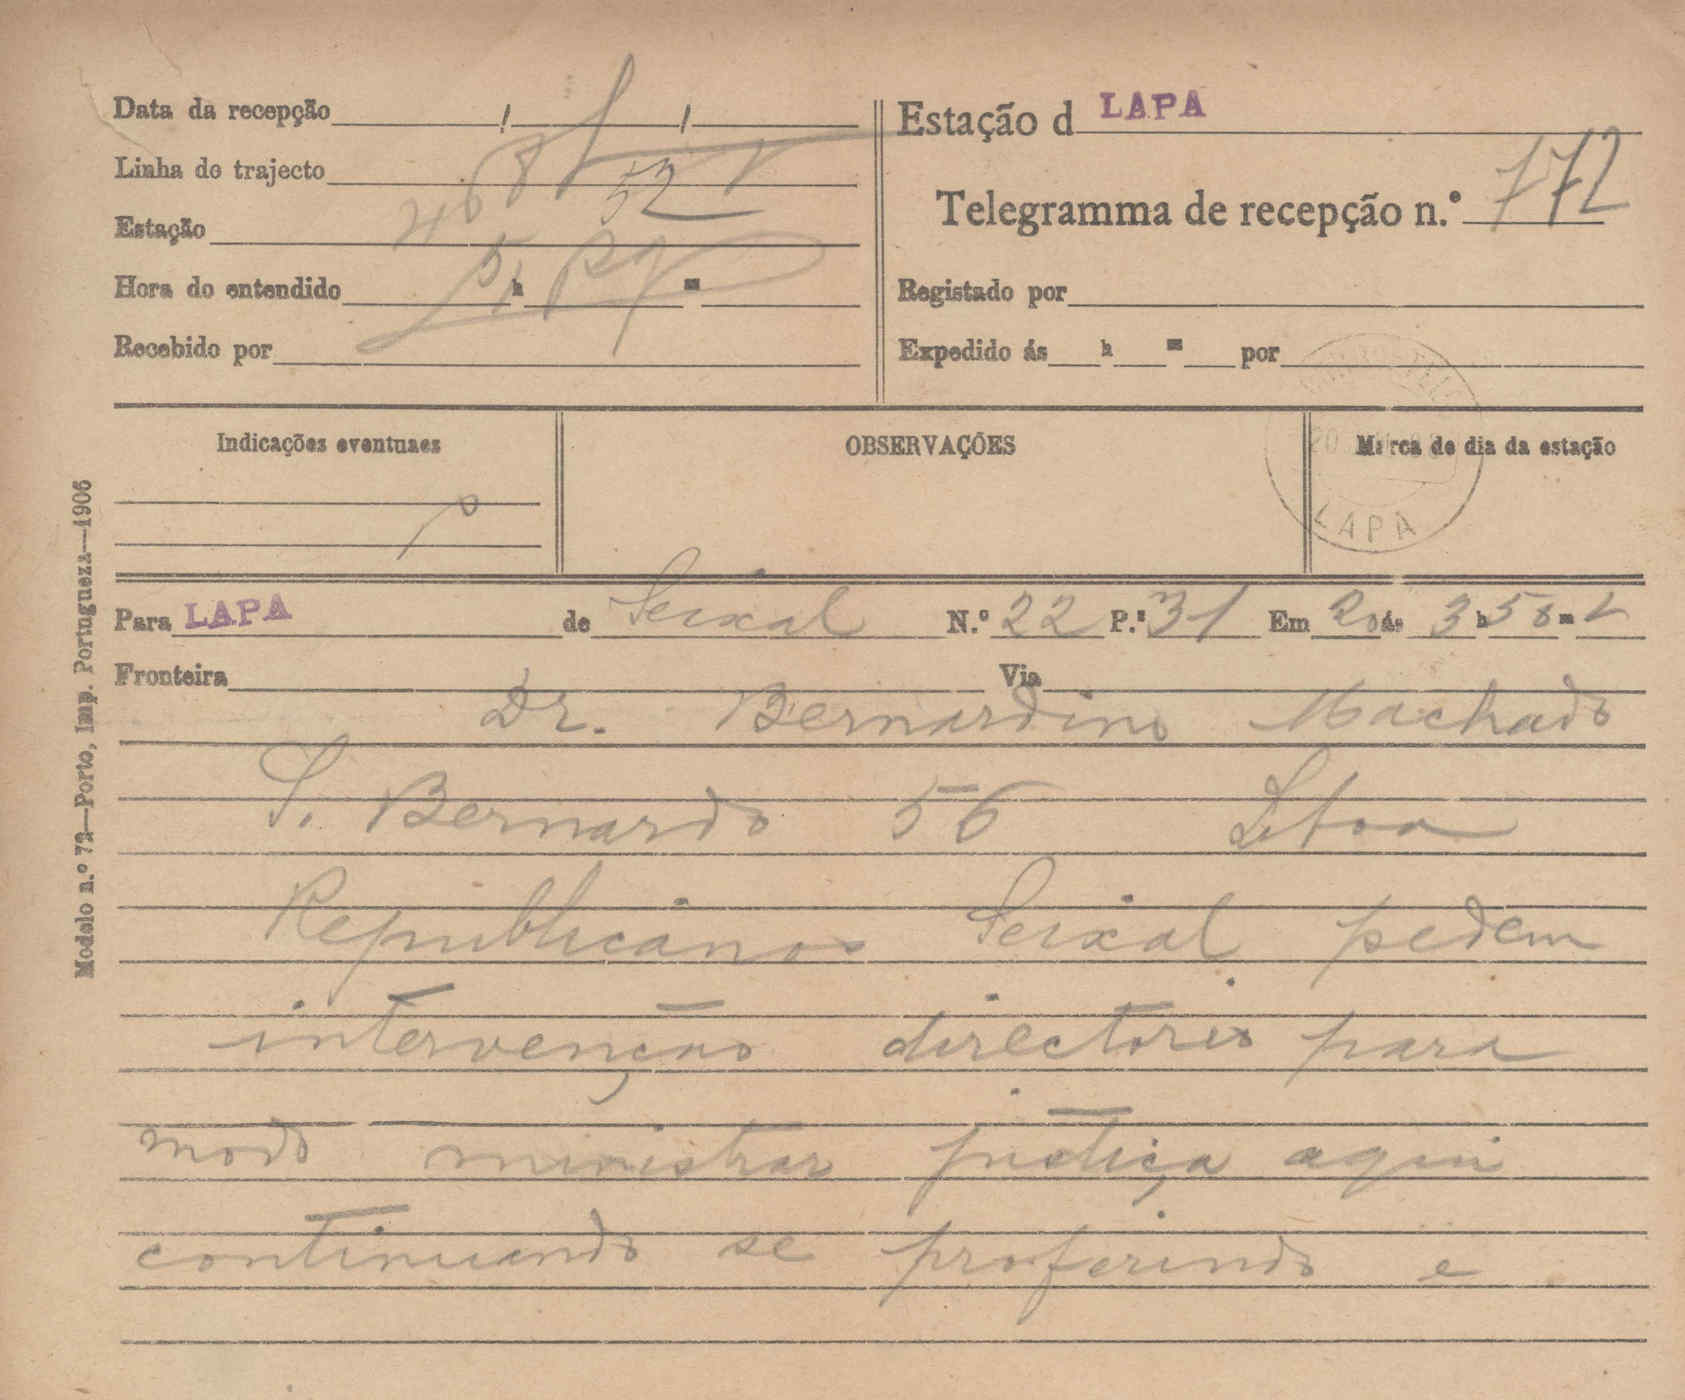 Data da recepção / /
Linha do trajecto
52
Estação
Hora do entendido h m
Recebido por
Estação d LAPA
Telegramma de recepção n.º 772
Registado por
Expedido ás h m por
Indicações eventuaes
OBSERVAÇÕES
Marca do dia da estação
LAPA
Para LAPA de Seixal N.º 22 P.s 31 Em 20 ás 3 h 58 m
Fronteira Via
Dr. Bernardino Machado
S. Bernardo 56 Lxboa
Republicanos Seixal pedem
intervenção directorio para
modo ministrar justiça aqui
continuando se proferindo e
Modelo n.º 72—Porto, Imp. Portugueza—1906